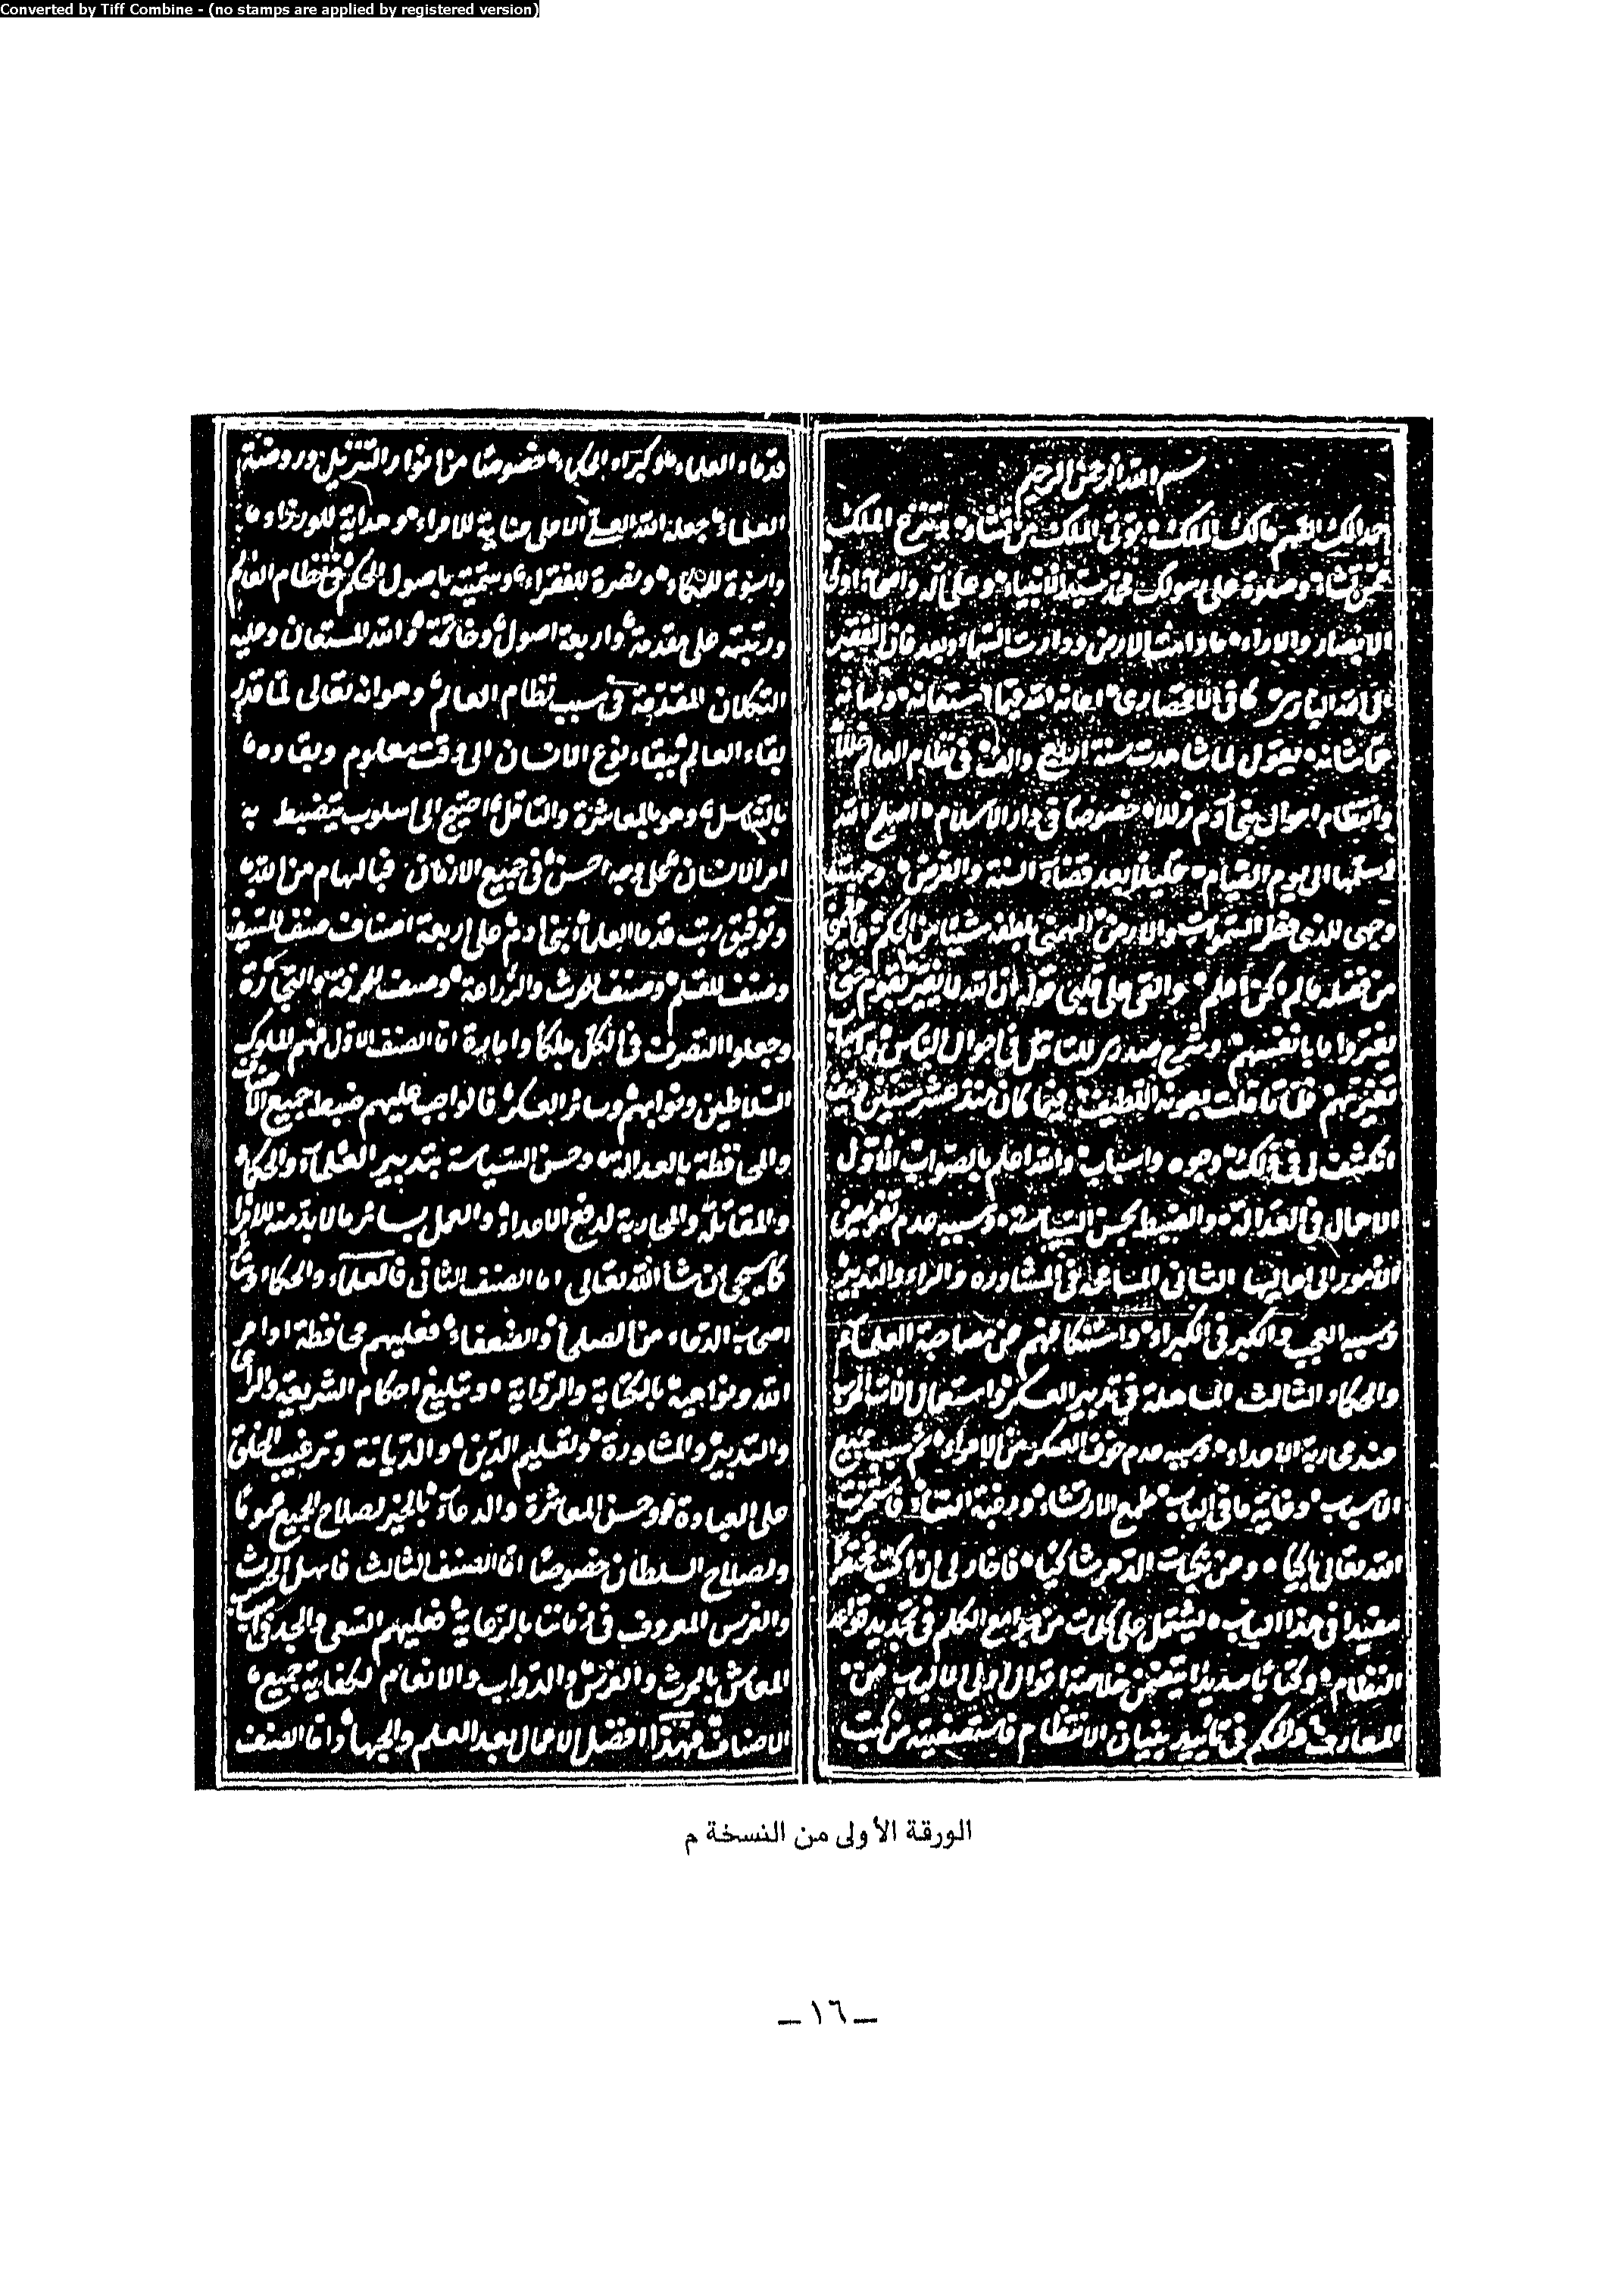 Converted by Tiff Combine - (no stamps are applied by registered version)
بسم الله الرحمن الرحيم
احمدك اللهم مالك الملك توتى الملك من تشاء وتنزع الملك
ممن تشاء وصلوة على رسولك محمد سيد الانبياء وعلى آله واصحابه اولى
الابصار والاراء ما دامت الارض ودارت السماء وبعد فان الفقير
الى الله البارى كافى الاقحصارى اعانه الله فيما استعانه وصانه
عما شانه يقول لما شاهدت سنة اربع والف فى نظام العالم خللا
وانتظام احوال بنى آدم زللا خصوصا فى دار الاسلام اصلح الله
وسلمها الى يوم القيام فليلا بعد قضاء السنة والفرض وجهت
وجهى للذى فطر السموات والارض الهمنى بلطفه شيئا من الحكم وعلمنى
من فضله ما لم اكن اعلم والقى على قلبى قوله ان الله لا يغير ما بقوم حتى
يغيروا ما بانفسهم وشرح صدرى للتامل فى احوال الناس
تغيرهم فلما تاملت بعونه اللطيف فيما كان منذ عشر سنين
انكشفت لى فى ذلك وجوه واسباب والله اعلم بالصواب الاول
الاهمال فى العدالة والضبط بحسن السياسة وسببه عدم تفويض
الامور الى اهاليها الثانى المسامحة فى المشاوره والراى والتدبير
وسببه العجب والكبر فى الكبراء واستنكافهم عن مصاحبة العلماء
والحكماء الثالث المساهلة فى تدبير العسكر واستعمال الات الحرب
عند محاربة الاعداء وسببه عدم خوف العسكر من الامراء ثم سبب جميع
الاسباب وغاية ما فى الباب طمع الارتشاء ورغبة النساء
الله تعالى باكيا وعن نكبات الدهر شاكيا فاختار لى ان اكتب مختصرا
مفيدا فى هذا الباب يشتمل على كلمات من جوامع الكلم فى تجديد قواعد
النظام وكتابا سديدا يتضمن خلاصة اقوال اولى الالباب من
المعارف والحكم فى تاييد بنيان الانتظام فاستصفيته من كتب
قدماء العلماء وكبراء الحكماء خصوصا من انوار التنزيل وروضة
العلماء جعله الله العلى الاعلى عناية للامراء وهداية للوزراء
واسوة للحكماء ونصرة للفقراء وسميته باصول الحكم فى نظام العالم
ورتبته على مقدمة واربعة اصول وخاتمة والله المستعان وعليه
التكلان المقدمة فى سبب نظام العالم وهو انه تعالى لما قدر
بقاء العالم ببقاء نوع الانسان الى وقت معلوم وبقاوه
بالتناسل وهو بالمعاشرة والتاهل احتيج الى اسلوب ينضبط به
امر الانسان على وجه احسن فى جميع الازمان فبالهام من الله
وتوفيق رتب قدما العلماء بنى ادم على اربعة اصناف صنف للسيف
وصنف للقلم وصنف للحرث والزراعة وصنف للحرفة والتجارة
وجعلوا التصرف فى الكل ملكا وامارة اما الصنف الاول فهم الملوك
السلاطين ونوابهم وسائر العسكر فالواجب عليهم ضبط جميع الاصناف
والمحافظة بالعدالة وحسن السياسة بتدبير العلماء والحكماء
والمقاتلة والمحاربة لدفع الاعداء والعمل بسائر ما لا بد منه للامراء
كما سيجئ ان شاء الله تعالى اما الصنف الثانى فالعلماء والحكماء
اصحاب الدعاء من الصلحاء والضعفاء فعليهم محافظة اوامر
الله ونواهيه بالكتابة والرواية وتبليغ احكام الشريعة والراى
والتدبير والمشاورة وتعليم الدين والديانة وترغيب الخلق
على العبادة وحسن المعاشرة والدعاء بالخير لصلاح الجميع عموما
ولصلاح السلطان خصوصا اما الصنف الثالث فاهل الحرث
والغرس المعروف فى زماننا بالرعاية فعليهم السعى والجد فى اسباب
المعاش بالحرث والغرس والدواب والانعام لكفاية جميع
الاصناف فهذا افضل الاعمال بعد العلم والجهاد واما الصنف
الورقة الأولى من النسخة م
ـ ١٦ ـ